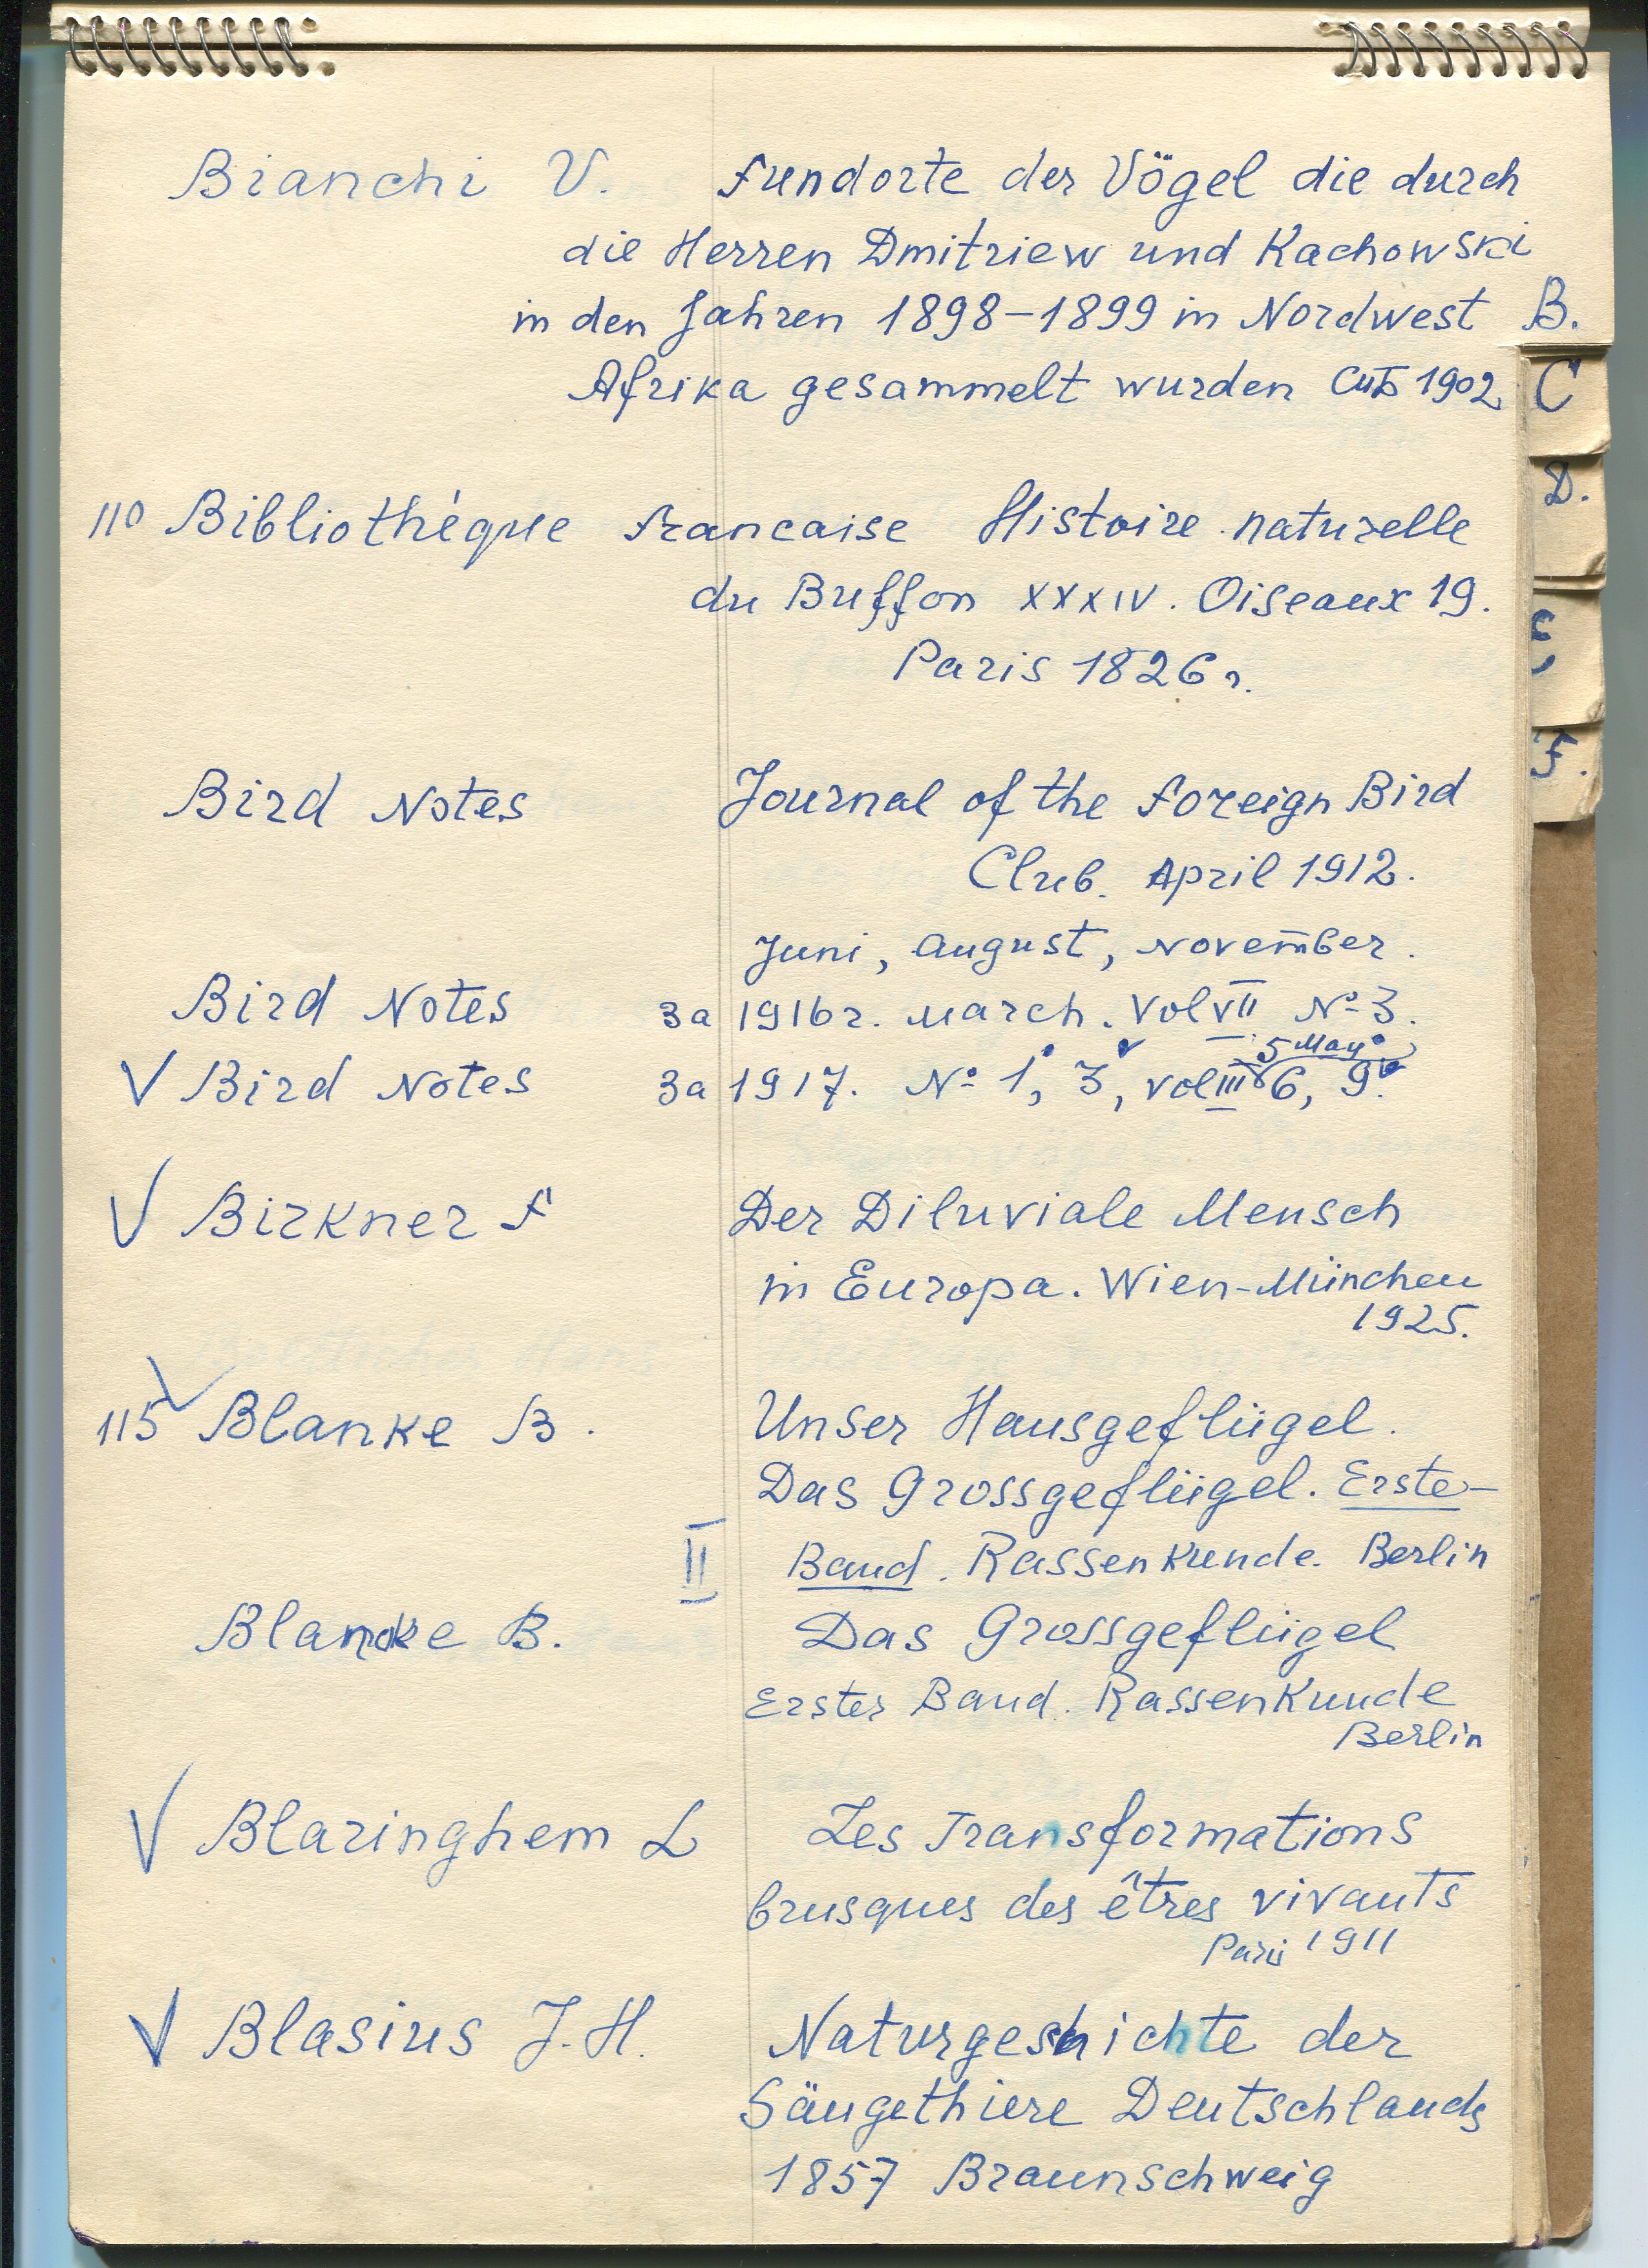 Bianchi V. Fundorte der Vögel die durch
die Herren Dmitriew und Kachowski
in den Jahren 1898–1899 in Nordwest
Afrika gesammelt wurden СПб 1902
B.
C
D.
110 Bibliothéque francaise Histoire naturelle
du Buffon XXXIV. Oiseaux 19.
Paris 1826 г.
F.
Bird Notes Journal of the Foreign Bird
Club. April 1912.
Juni, August, November.
Bird Notes за 1916 г. March. Vol VII № 3.
5 May
V Bird Notes за 1917. № 1, 3, vol III 6, 9.
V Birkner F Der Diluviale Mensch
in Europa. Wien-München
1925.
115 V Blanke B. Unser Hausgeflügel.
Das Grossgeflügel. Erste-
II Band. Rassenkunde. Berlin
Blanke B. Das Grossgeflügel
Erster Band. Rassenkunde
Berlin
V Blaringhem L Les Transformations
brusques des êtres vivants
Paris 1911
V Blasius J. H. Naturgeschichte der
Säugethiere Deutschlands
1857 Braunschweig